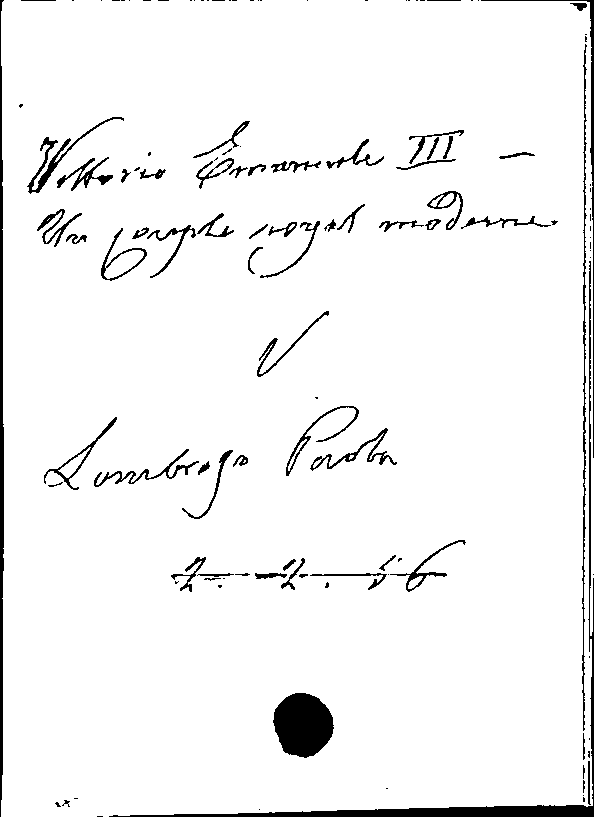 Vittorio Emanuele III —
Un couple royal moderne.
V
Lombroso Paola
2. 2. 56